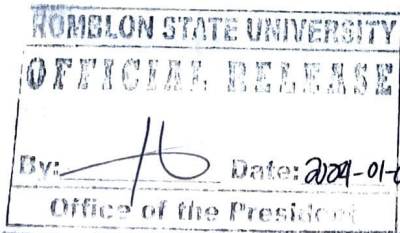 ROMBLON STATE UNIVERSITY
OFFICIAL RELEASE
By: Date: 2024-01-
Office of the President